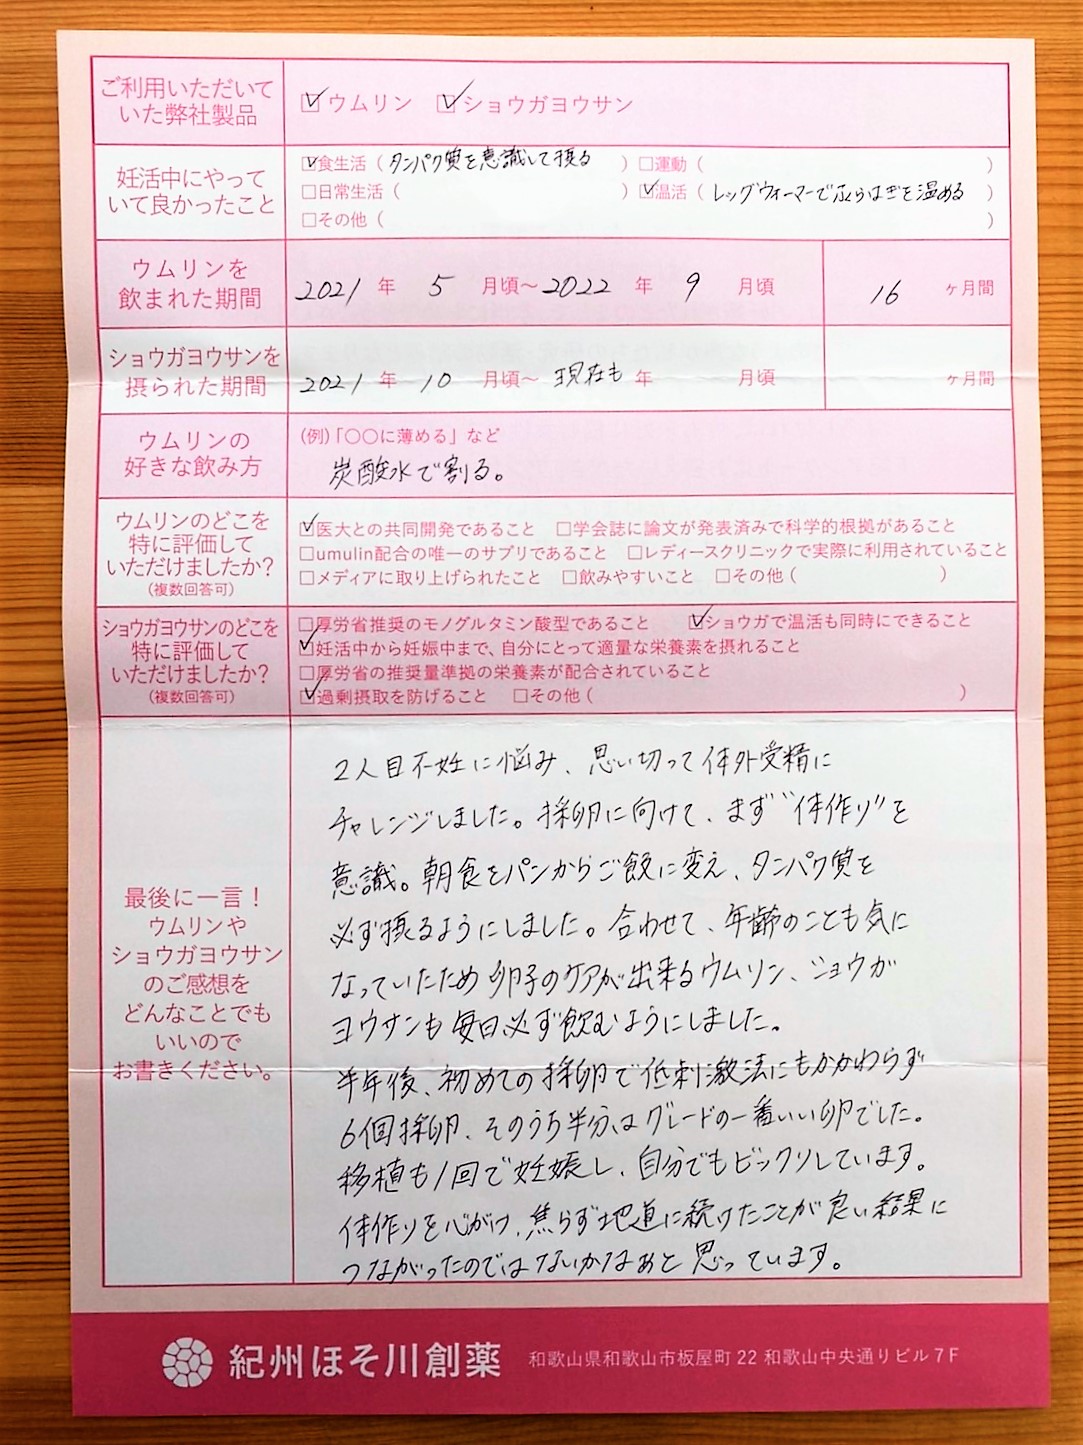 ご利用いただいて
いた弊社製品
☑ウムリン ☑ショウガヨウサン
妊活中にやって
いて良かったこと
☑食生活（タンパク質を意識して摂る）□運動（ ）
□日常生活（ ）☑温活（レッグウォーマーでふくらはぎを温める）
□その他（ ）
ウムリンを
飲まれた期間
2021 年 5 月頃～2022 年 9 月頃 16 ヶ月間
ショウガヨウサンを
摂られた期間
2021 年 10 月頃～ 現在も 年 月頃 ヶ月間
ウムリンの
好きな飲み方
（例）「〇〇に薄める」など
炭酸水で割る。
ウムリンのどこを
特に評価して
いただけましたか？
（複数回答可）
☑医大との共同開発であること □学会誌に論文が発表済みで科学的根拠があること
□umulin配合の唯一のサプリであること □レディースクリニックで実際に利用されていること
□メディアに取り上げられたこと □飲みやすいこと □その他（ ）
ショウガヨウサンのどこを
特に評価して
いただけましたか？
（複数回答可）
□厚労省推奨のモノグルタミン酸型であること ☑ショウガで温活も同時にできること
☑妊活中から妊娠中まで、自分にとって適量な栄養素を摂れること
□厚労省の推奨量準拠の栄養素が配合されていること
☑過剰摂取を防げること □その他（ ）
最後に一言！
ウムリンや
ショウガヨウサン
のご感想を
どんなことでも
いいので
お書きください。
2人目不妊に悩み、思い切って体外受精に
チャレンジしました。採卵に向けて、まず"体作り"を
意識。朝食をパンからご飯に変え、タンパク質を
必ず摂るようにしました。合わせて、年齢のことも気に
なっていたため卵子のケアが出来るウムリン、ショウガ
ヨウサンも毎日必ず飲むようにしました。
半年後、初めての採卵で低刺激法にもかかわらず
6個採卵、そのうち半分はグレードの一番いい卵でした。
移植も1回で妊娠し、自分でもビックリしています。
体作りを心がけ、焦らず地道に続けたことが良い結果に
つながったのではないかなぁと思っています。
紀州ほそ川創薬 和歌山県和歌山市板屋町22 和歌山中央通りビル7F